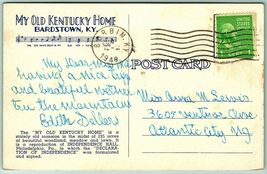 MY OLD KENTUCKY HOME
BARDSTOWN, KY.
BIN, KY.
1948
POST CARD
My dear
having a nice trip
and beautiful weather
the mountains
Edith Sellers
Miss Anna M Lewis
3600 Ventnor Ave
Atlantic City NJ
The "MY OLD KENTUCKY HOME" is a
stately old mansion in the midst of 235 acres
of beautiful woodland, meadow and lawn. It
is a reproduction of INDEPENDENCE HALL,
Philadelphia, Pa., in which the "DECLARA-
TION OF INDEPENDENCE" was formulated
and signed.